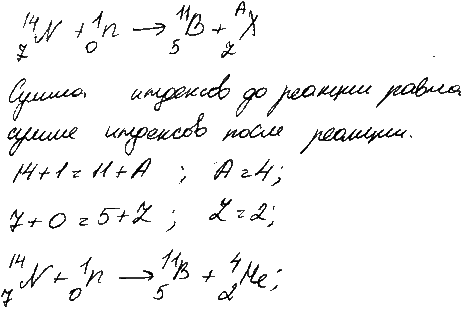 ¹⁴₇N + ¹₀n → ¹¹₅B + ᴬ_Z X
Сумма индексов до реакции равна
сумме индексов после реакции.
14+1=11+A ; A=4;
7+0=5+Z ; Z=2;
¹⁴₇N + ¹₀n → ¹¹₅B + ⁴₂He;